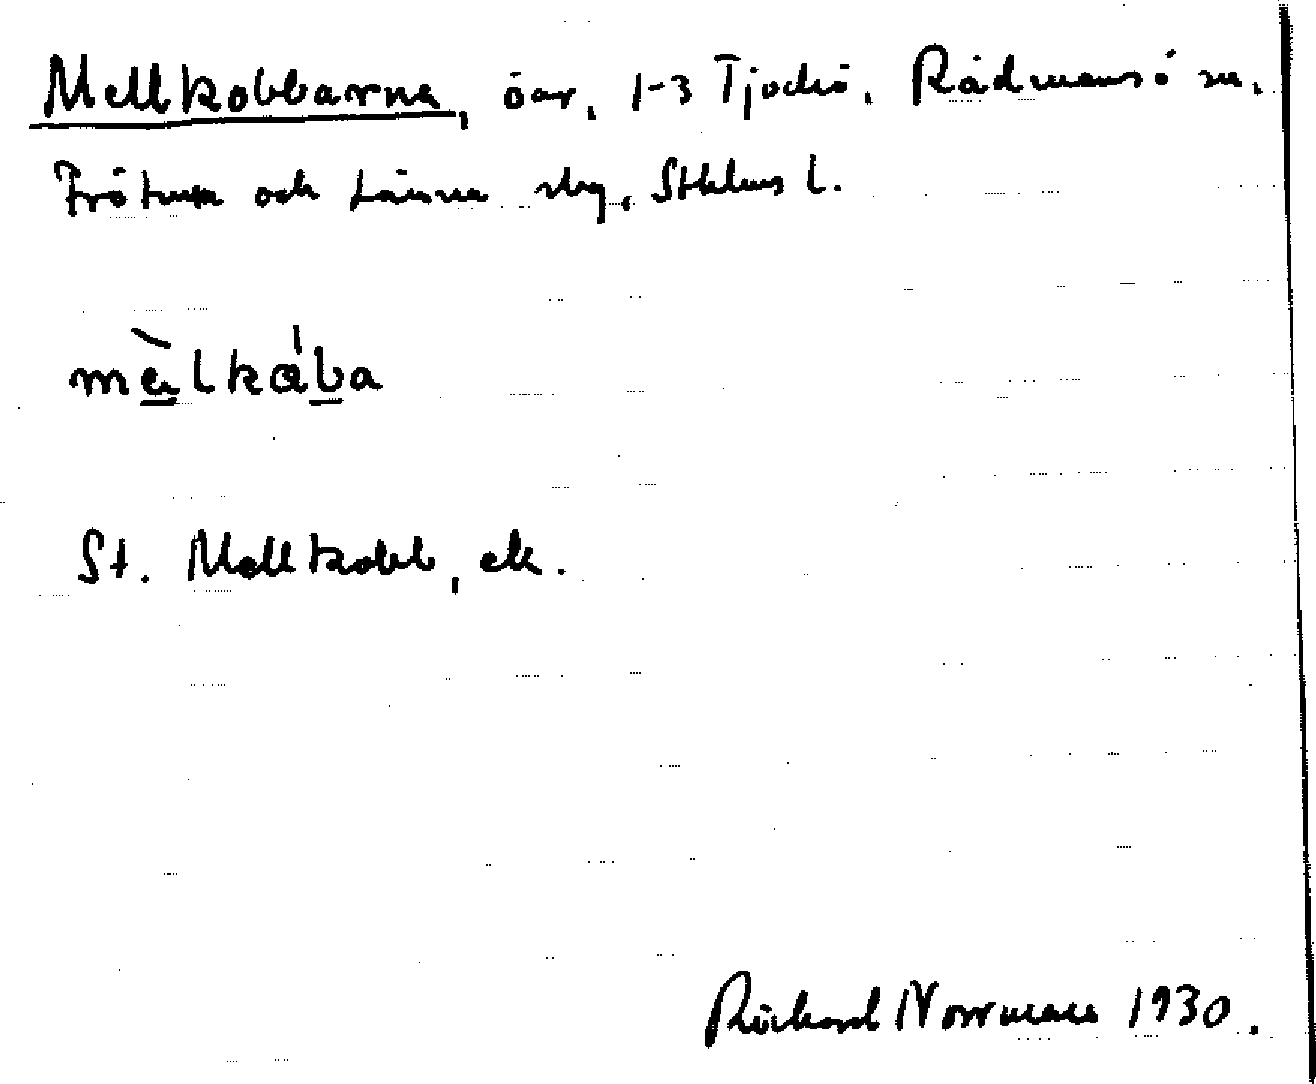 Mellkobbarna, öar, 1-3 Tjockö, Rådmansö sn,
Frötuna och Länna skg, Sthlms l.
mälkába
St. Mellkobb, ek.
Rickard Norrman 1930.